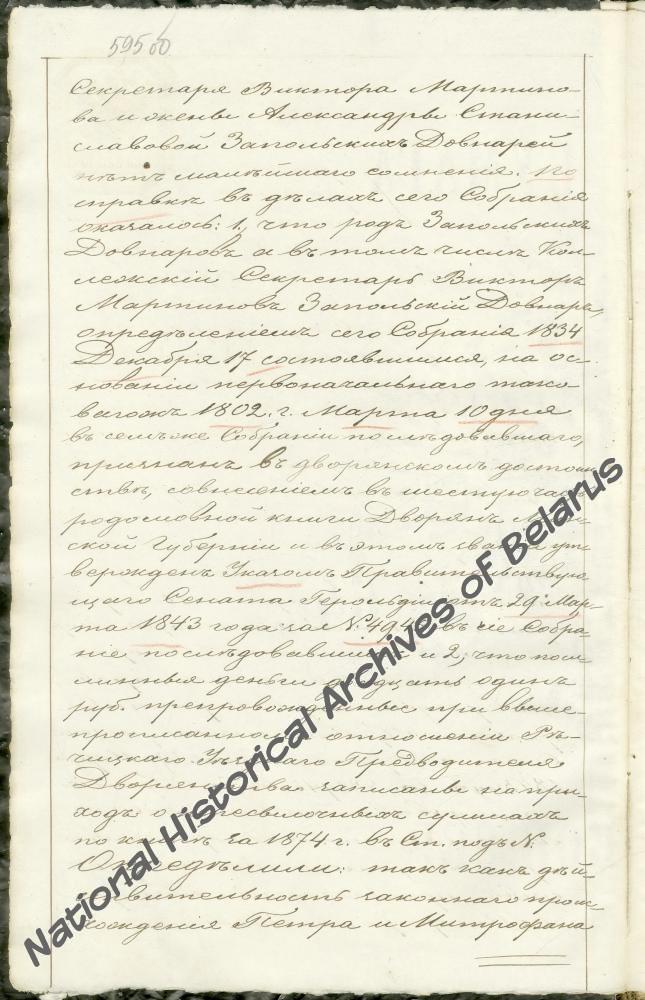 595 об.
Секретаря Виктора Мартино-
ва и жены Александры Стани-
славовой Запольскихъ Довнарей
нѣтъ малѣйшаго сомненія. По
справкѣ въ дѣлахъ сего Собранія
оказалось: 1, что родъ Запольскихъ
Довнаровъ а въ томъ числѣ Кол-
лежскій Секретарь Викторъ
Мартиновъ Запольскій Довнаръ,
опредѣленіемъ сего Собранія 1834
Декабря 17 состоявшимся, на ос-
нованіи первоначальнаго тако
вагожъ 1802. г. Марта 10 дня
въ семъ же Собраніи последовавшаго,
признанъ въ дворянскомъ достоин
ствѣ, совнесеніемъ въ шестую часть
родословной книги Дворянъ Мин-
ской Губерніи и въ этомъ званіи ут-
вержденъ Указомъ Правительствую-
щаго Сената Герольдіи отъ 29 Мар-
та 1843 года за №. 494 въ сіе Собра-
ніе последовавшимъ и 2, что пош-
линныя деньги двадцать одинъ
руб. препровожденные при выше-
прописанномъ отношеніи Рѣ-
чицкаго Уѣзднаго Предводителя
Дворянства записаны на при-
ходъ о пересылочныхъ суммахъ
по книгѣ за 1874 г. въ Ст. подъ №.
Опредѣлили: такъ какъ дѣй-
ствительность законнаго проис-
хожденія Петра и Митрофана
National Historical Archives of Belarus